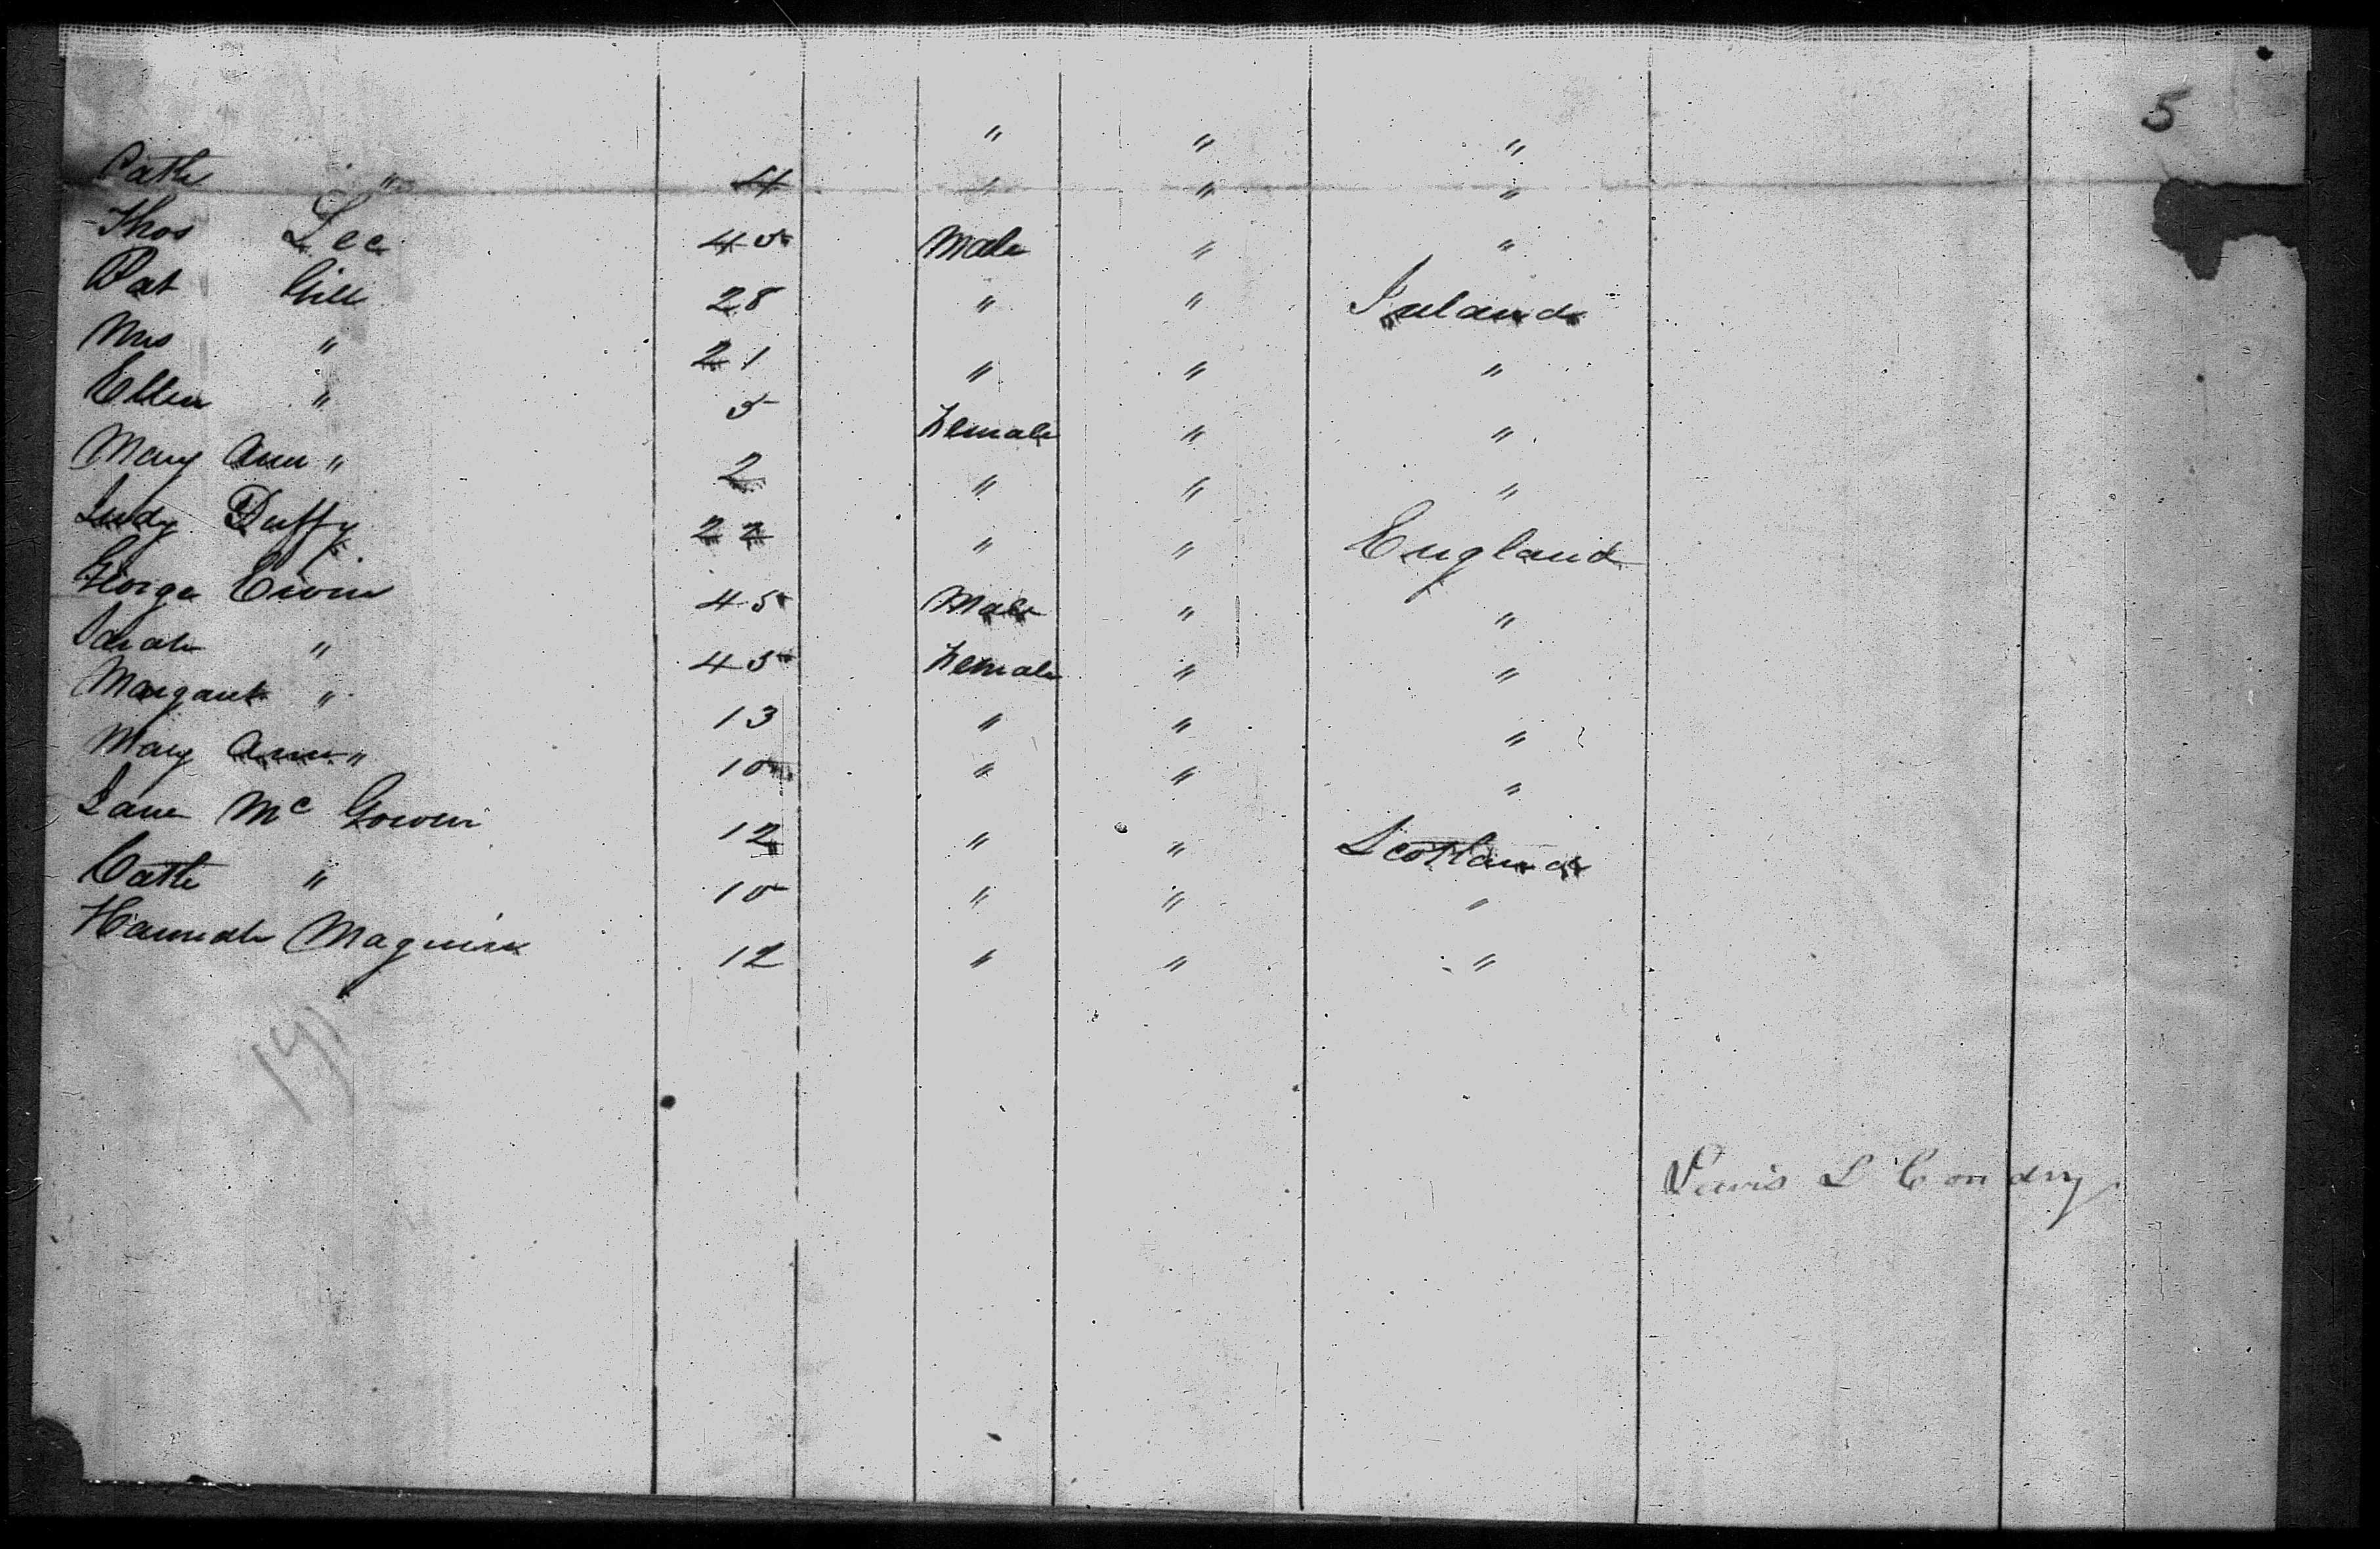 5
" " "
Cath " 4 " " "
Thos Lee 40 Male " "
Pat Gill 28 " " Ireland
Mrs " 21 " " "
Ellen " 5 Female " "
Mary Ann " 2 " " "
Judy Duffy 22 " " England
George 45 Male " "
Sarah " 45 Female " "
Margaret " 13 " " "
Mary Ann " 10 " " "
Jane Mc Gowen 12 " " Scotland
Cath " 10 " " "
Hannah Maguire 12 " " "
191
Lewis L Condry